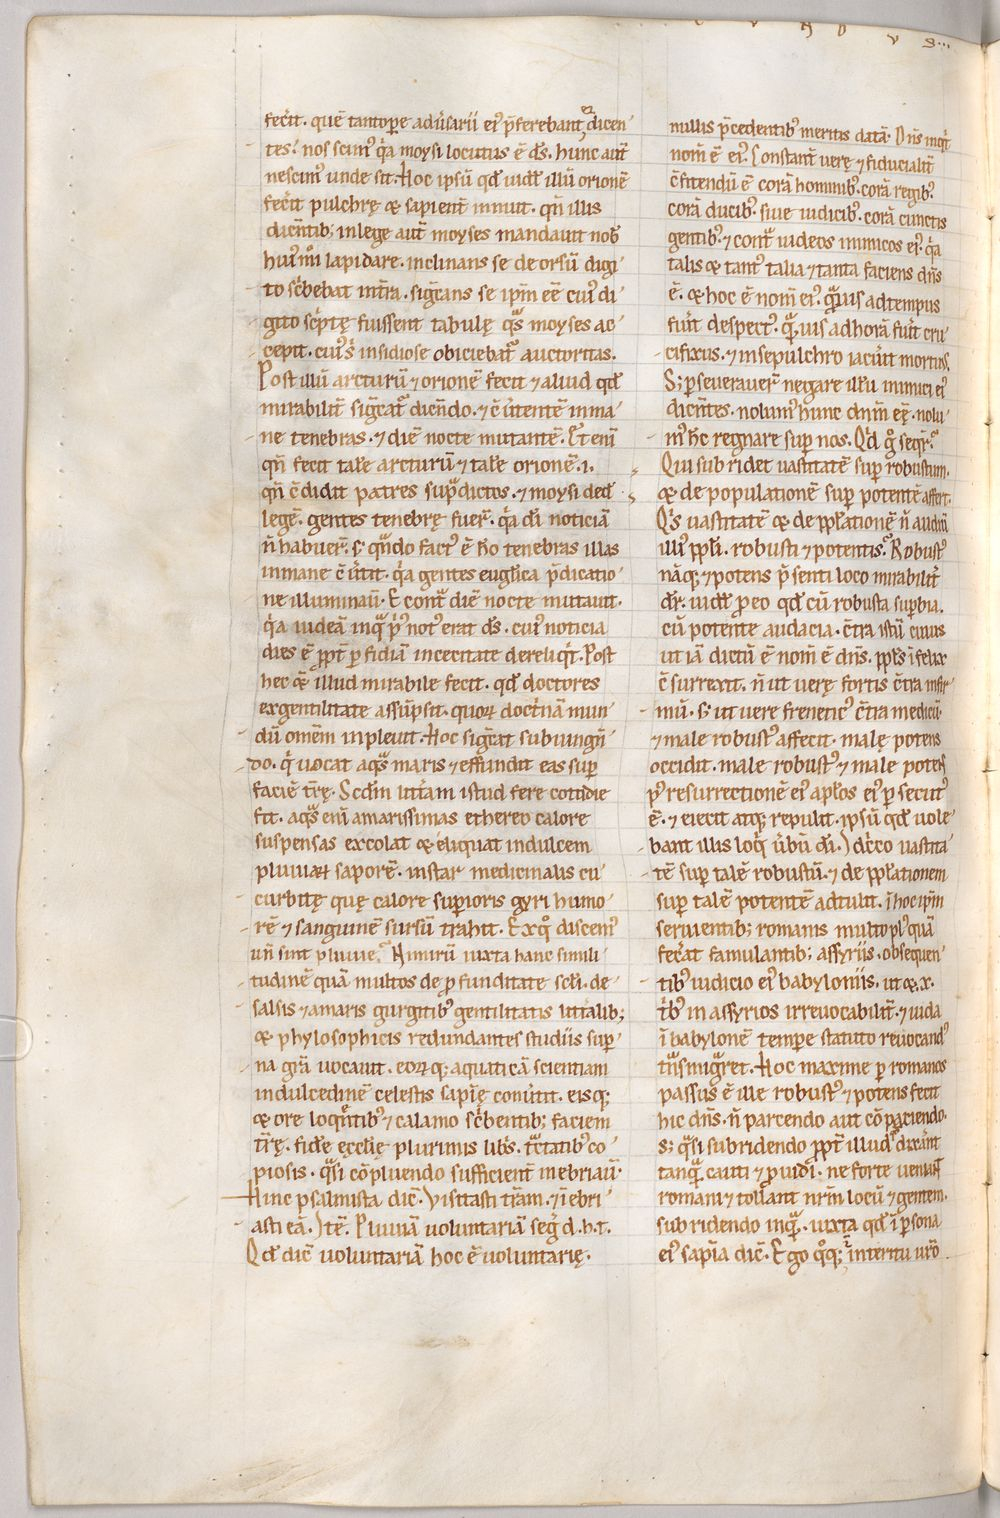 fecīt. quē tantopere aduersarii eiꝰ p̄ferebant, dicen
tes; nos scimꝰ qͥa moysi locutus ē dī. hunc aūt
nescimꝰ unde sit. Hoc ipsū qd̄ uidet illū orionē
fecīt pulchrę & sapient̄ innuit. qn̄ illis
dicentib; in lege aut̄ moyses mandauit nob̄
huiꝰmōi lapidare. inclinans se deorsū digi
to sc̄bebat in tr̄a. sig̅cans se ip̄m eē cuiꝰ di
gito sc̄ptę fuissent tabulę qͣs moyses ac
cepit. cuiꝰ sͥ insidiose obiciebat̄ auctoritas.
Post illū arcturū ⁊ orionē fecit ⁊ aliud qd̄
mirabilit̄ sig̅cat̄ dicendo. ⁊ c̄uertentē in ma
ne tenebras. ⁊ diē nocte mutantē. Et enī
qn̄ fecit tale arcturū ⁊ tale orionē .i.
qn̄ c̄didit patres supͣdictos. ⁊ moysi ded̄
legē. gentes tenebrę fuer̄. qͥa dī noticiā
n̄ habuer̄. sꝫ qͣndo factꝰ ē hō tenebras illas
in mane c̄ūtit. qͥa gentes eūglica p̄dicatio
ne illuminau̅. E contͣ diē nocte mutauit.
qͥa iudeā in qͣ pͥꝰ notꝰ erat dī. cuiꝰ noticia
dies ē ꝓpt̄ perfidiā in cecitate dereliqͥt. Post
hec & illud mirabile fecit. qd̄ doctores
ex gentilitate assūpsit. quoꝝ doctͥnā mun
dū om̄em inpleuit. Hoc sig̅cat subiungn̄
do. qͥ uocat aqͣs maris ⁊ effundit eas sup
faciē tr̄ę. Scd̄m litt̄am istud fere cotidie
fit. aqͣs enī amarissimas ethereo calore
suspensas excolat & eliquat in dulcem
pluuiaꝝ saporē. instar medicinalis cu
curbitę quę calore superioris gyri humo
rē ⁊ sanguinē sursū trahit. Ex qͦ discernꝰ
un̄ sint pluuię. Nimirū iuxta hanc simili
tudinē quā multos de profunditate scli. de
salsis ⁊ amaris gurgitibꝰ gentilitatis litt̄alib;
& phylosophicis redundantes studiis sup
na gr̄a uocauit. eoꝝ q; aquaticā scientiam
in dulcedinē celestis sapīę conūtit. eisq;
& ore loqͤntibꝰ ⁊ calamo sc̄bentib; faciem
tr̄ę. fide ęcclię plurimis libͥs. tͣctatibꝰ co
piosis. qͣsi cōpluendo sufficient̄ inebriau̅.
Hinc psalmista dic̄. Visitasti tr̄am. ⁊ inebri
asti eā. Itē. Pluuiā uoluntariā seg̅ d. h. t.
Qd̄ dic̄ uoluntariā hoc ē uoluntarię.
nullis p̄cedentibꝰ meritis datā. Dn̄s inqͥt
nom̄ ē eiꝰ. Constant̄ uerę ⁊ fiducialit̄
c̄fitendū ē corā hominibꝰ. corā regibꝰ.
corā ducibꝰ. siue iudicibꝰ. corā cunctis
gentibꝰ. ⁊ contͣ iudeos inimicos eiꝰ. qͥa
talis & tantꝰ talia ⁊ tanta faciens dn̄s
ē. & hoc ē nom̄ eiꝰ. qͣuis ad tempus
fuīt despectꝰ. qͣuis ad horā fuīt cru
cifixus. ⁊ in sepulchro iacuīt mortuꝰ.
S; perseuerauer̄ negare illū inimici eiꝰ
dicentes. nolumꝰ hunc dn̄m eē. nolu
mꝰ hc̄ regnare sup nos. Qd̄ gͦ seqͥt̄.
Qui subridet uastitatē sup robustum.
& depopulationē sup potentē affert.
Qͥs uastitatē & depplationē n̄ audiuit
illiꝰ ppli. robusti ⁊ potentis. Robustꝰ
nāq; ⁊ potens p̄senti loco mirabilit̄
dr̄. uidet̄ pro eo qd̄ cū robusta supbia.
cū potente audacia. c̄tra istū cuius
ut iā dictū ē nom̄ ē dn̄s. ppl̄s infelix
c̄surrexit. n̄ ut uerę fortis c̄tra infir
mū. sꝫ ut uere freneticꝰ c̄tra medicū.
⁊ male robustꝰ affecit. malę potens
occidit. male robustꝰ ⁊ male potens
pꝰ resurrectionē eiꝰ apl̄os eiꝰ persecutꝰ
ē. ⁊ eiecit atq; repulit. ipsū qd̄ uole
bant illis loqͥ ūbū dī. Idcͥco uastita
tē sup talē robustū. ⁊ depplationem
sup talē potentē adtulit. in hoc ip̄m
seruientib; romanis multo plꝰ quā
fecͣt famulantib; assyriis. obsequen
tibꝰ iudicio eiꝰ babyloniis. ut &. x.
tͥbꝰ in assyrios irreuocabilit̄. ⁊ iuda
in babylonē tempe statuto reuocandꝰ
tͣnsmigret. Hoc maxime p romanos
passus ē ille robustꝰ ⁊ potens fecit
hic dn̄s. n̄ parcendo aut cōpaciendo.
S; qͣsi subridendo ꝓpt̄ illud dixer̄nt
tanqͣ cauti ⁊ prouidi. ne forte ueniāt
romani ⁊ tollant nr̄m locū ⁊ gentem.
subridendo inqͣ. iuxta qd̄ in persona
eiꝰ sapīa dic̄. Ego qͦq; in interitu ur̄o